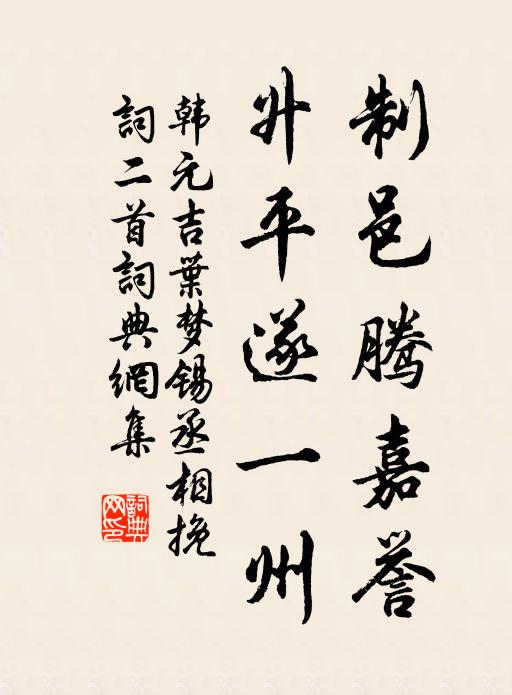 制邑腾嘉誉
升平遂一州
韩元吉葉梦锡丞相挽
詞二首詞典網集
詞典
网印